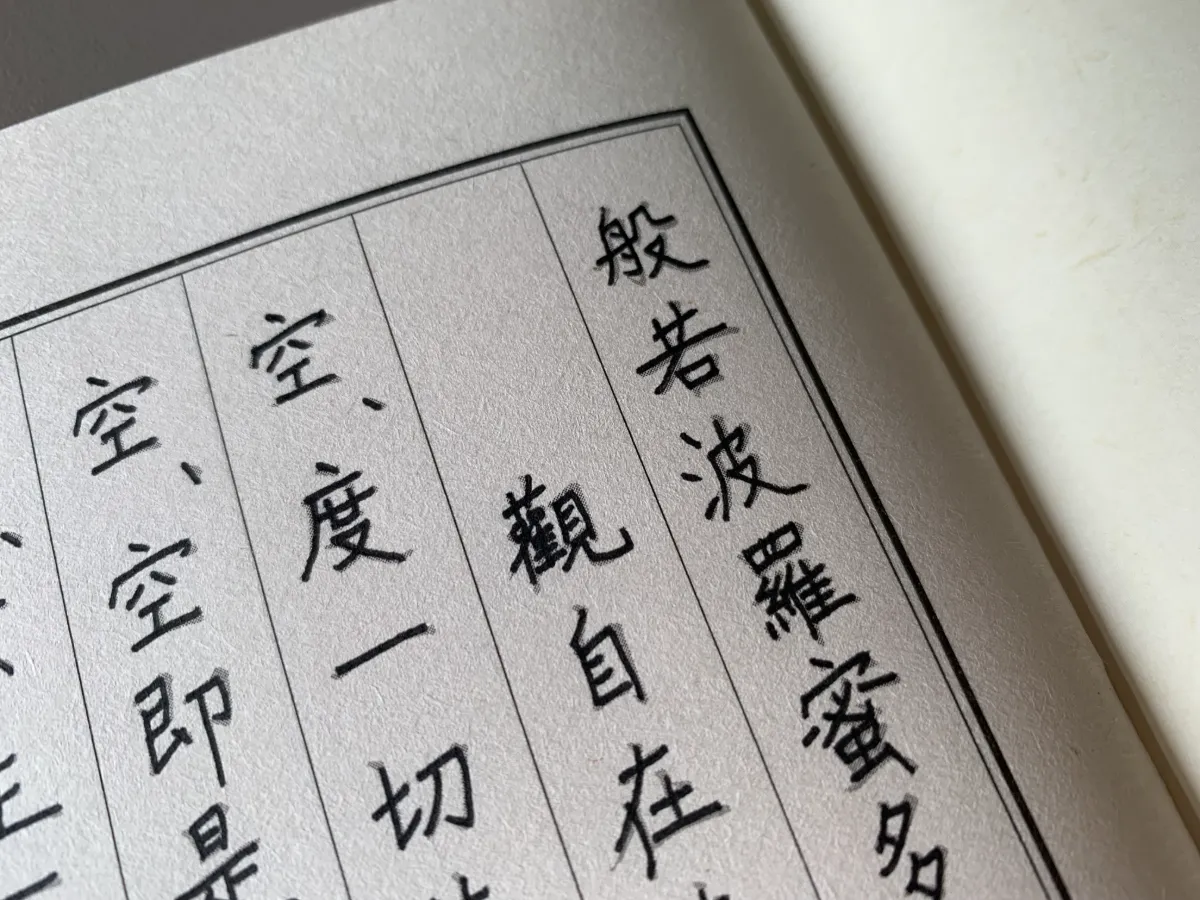 般若波羅蜜多
觀自在
空、度一切
空、空即是